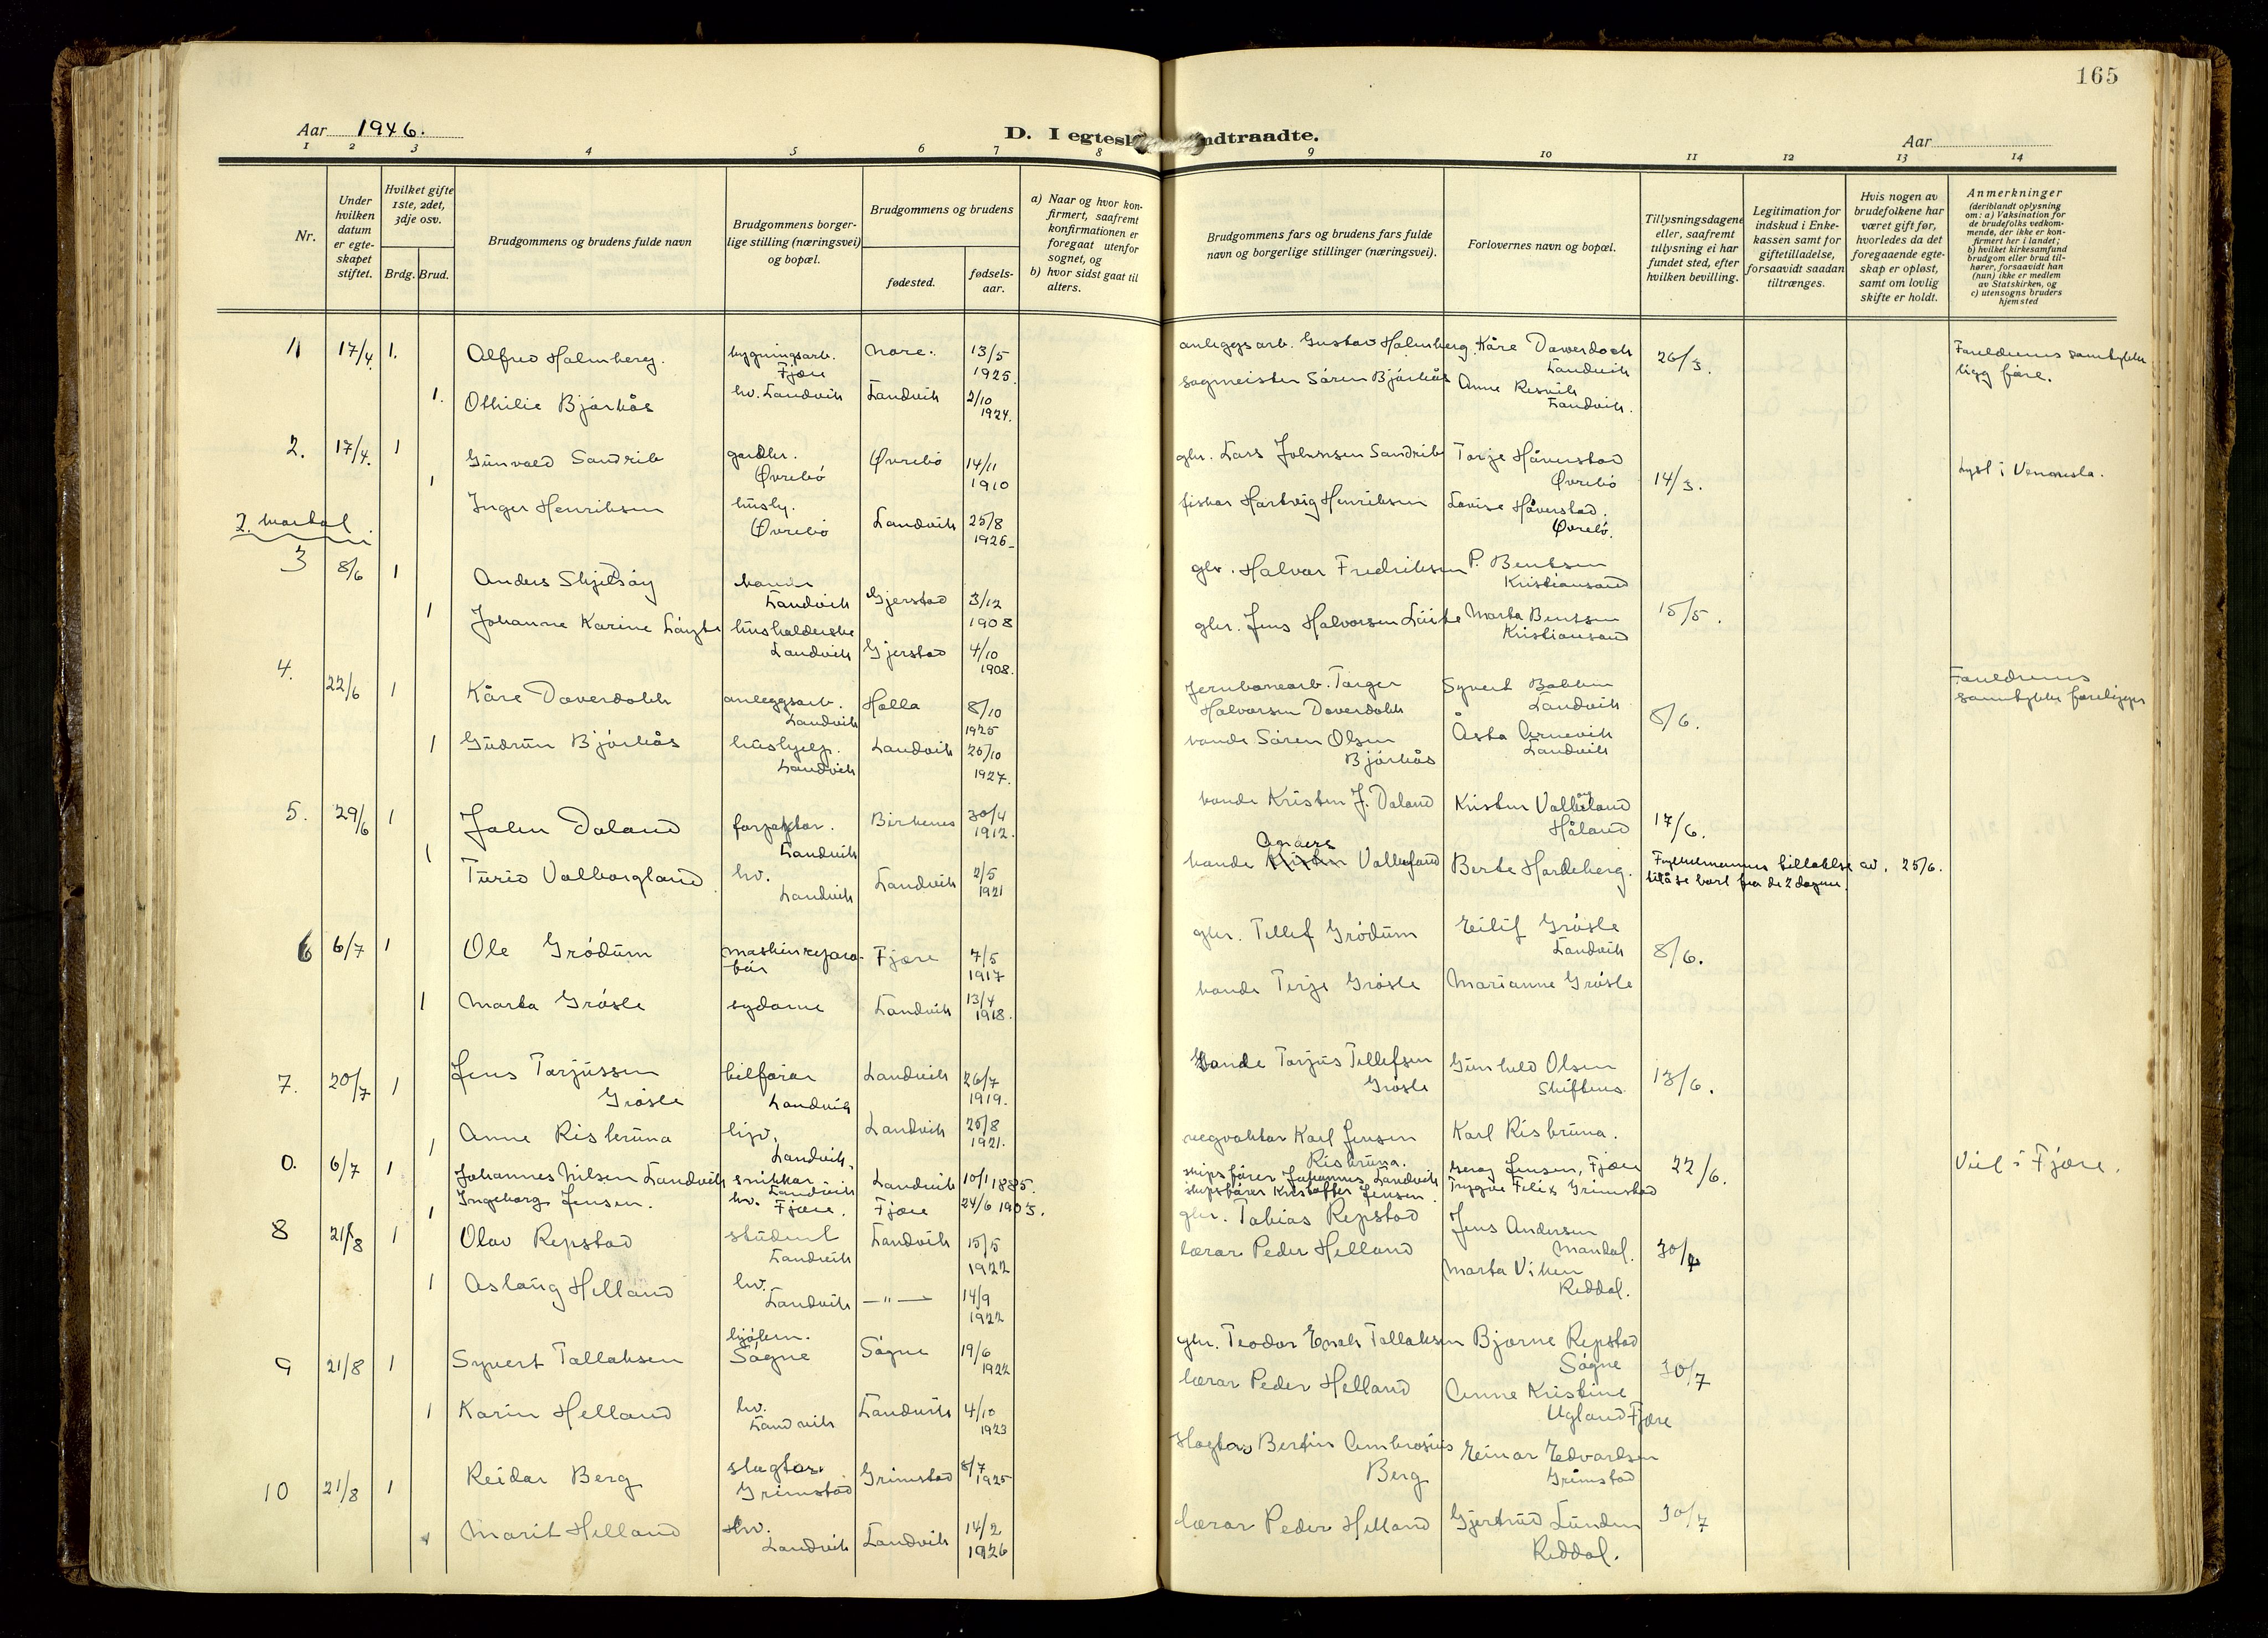 165
Aar 1946.
D. I egtesk ndtraadte.
Aar
1 2 3 4 5 6 7 8 9 10 11 12 13 14
Nr.
Under hvilken datum er egteskapet stiftet.
Hvilket gifte 1ste, 2det, 3dje osv.
Brdg. Brud.
Brudgommens og brudens fulde navn
Brudgommens borgerlige stilling (næringsvei) og bopæl.
Brudgommens og brudens
fødested.
fødselsaar.
a) Naar og hvor konfirmert, saafremt konfirmationen er foregaat utenfor sognet, og
b) hvor sidst gaat til alters.
Brudgommens fars og brudens fars fulde navn og borgerlige stillinger (næringsvei).
Forlovernes navn og bopæl.
Tillysningsdagene eller, saafremt tillysning ei har fundet sted, efter hvilken bevilling.
Legitimation for indskud i Enkekassen samt for giftetilladelse, forsaavidt saadan tiltrænges.
Hvis nogen av brudefolkene har været gift før, hvorledes da det foregaaende egteskap er opløst, samt om lovlig skifte er holdt.
Anmerkninger
(deriblandt oplysning om: a) Vaksination for de brudefolks vedkommende, der ikke er konfirmert her i landet; b) hvilket kirkesamfund brudgom eller brud tilhører, forsaavidt han (hun) ikke er medlem av Statskirken, og c) utensogns bruders hjemsted
1 17/4. 1. Alfred Halmberg. bygningsarb. Fjære Nore. 13/5 1925. anleggsarb. Gustav Halmberg. Kåre Daverdock Landvik 26/3. Foreldrenes samtykke ligg føre.
1. Othilie Bjørkås hv. Landvik Landvik 2/10 1924. sagmeister Søren Bjørkås Anne Resvik Landvik.
2. 17/4. 1 Gunvald Sandrib gardbr. Øvrebø Øvrebø 14/11 1910 gbr. Lars Johnsen Sandrib Tarje Håverstad Øvrebø 14/3. Lyst i Vennesla.
1 Inger Henriksen hushj. Øvrebø Landvik 25/8 1926 fiskar Hartvig Henriksen Lovise Håverstad. Øvrebø.
2. kvartal.
3 8/6 1 Anders Skjelsøy bonde Landvik Gjerstad 3/12 1908 gbr. Halvor Fredriksen P. Bentsen Kristiansand 15/5.
1 Johanne Karine Løyte husholderske Landvik Gjerstad 4/10 1908. gbr. Jens Halvorsen Løite Marta Bentsen Kristiansand
4. 22/6 1 Kåre Daverdokk anleggsarb. Landvik Holla 8/10 1925 Jernbanearb. Targer Halvorsen Daverdokk Syvert Bakken Landvik 8/6. Foreldrenes samtykke foreligger
1 Gudrun Bjørkås hushjelp. Landvik Landvik 25/10 1927. bonde Søren Olsen Bjørkås Åsta Arnevik Landvik
5. 29/6 1 John Daland forpaktar. Landvik Birkenes 30/4 1912. bonde Kristen J. Daland Kristen Valborgland Håland 17/6.
1 Turid Valborgland hv. Landvik Landvik 2/5 1921 bonde Anders Valborgland Berte Hardeberg. Fylkesmannens tillatelse av 25/6. til å se bort fra de 2 dagene.
6 6/7 1 Ole Grødum maskinreparatør Fjære 7/5 1917 gbr. Tellef Grødum Eilif Grøsle Landvik 8/6.
1 Marta Grøsle sydame Landvik 13/4 1918. bonde Terje Grøsle Marianne Grøsle
7. 20/7 1 Jens Tarjussen Grøsle bilførar Landvik Landvik 26/7 1919. Bonde Tarjus Tellefsen Grøsle Gunhild Olsen Skiftenes 13/6.
1 Anne Risbruna hjv. Landvik. Landvik 25/8 1921. vegvaktar Karl Jensen Risbruna. Karl Risbruna.
0. 6/7 1 Johannes Nilsen Landvik snikkar Landvik Landvik 10/1 1885. skipsfører Johannes Landvik Georg Jensen, Fjære 22/6. Viet i Fjære.
1 Ingeborg Jensen. hv. Fjære. Fjære 24/6 1905. skipsfører Kristoffer Jensen. Trygve Felix Grimstad
8 21/8 1 Olav Repstad student Landvik Landvik 15/5 1922 gbr. Tobias Repstad Jens Andersen Mandal. 30/7
1 Aslaug Helland hv. Landvik —"— 14/9 1922 lærar Peder Helland Marta Viken Reddal.
9 21/8 1 Syvert Tallaksen Søgne Søgne 19/6 1922 gbr. Teodor Enok Tallaksen Bjarne Repstad Søgne 30/7
1 Karin Helland hv. Landvik Landvik 4/10 1923 lærar Peder Helland Anne Kristine Ugland Fjære
10 21/8 1 Reidar Berg slagtar Grimstad Grimstad 8/7 1925 Slagtar Bertin Ambrosius Berg Einar Edvardsen Grimstad 30/7
1 Marit Helland hv. Landvik Landvik 14/2 1926 lærar Peder Helland Gjertrud Lunden Reddal.